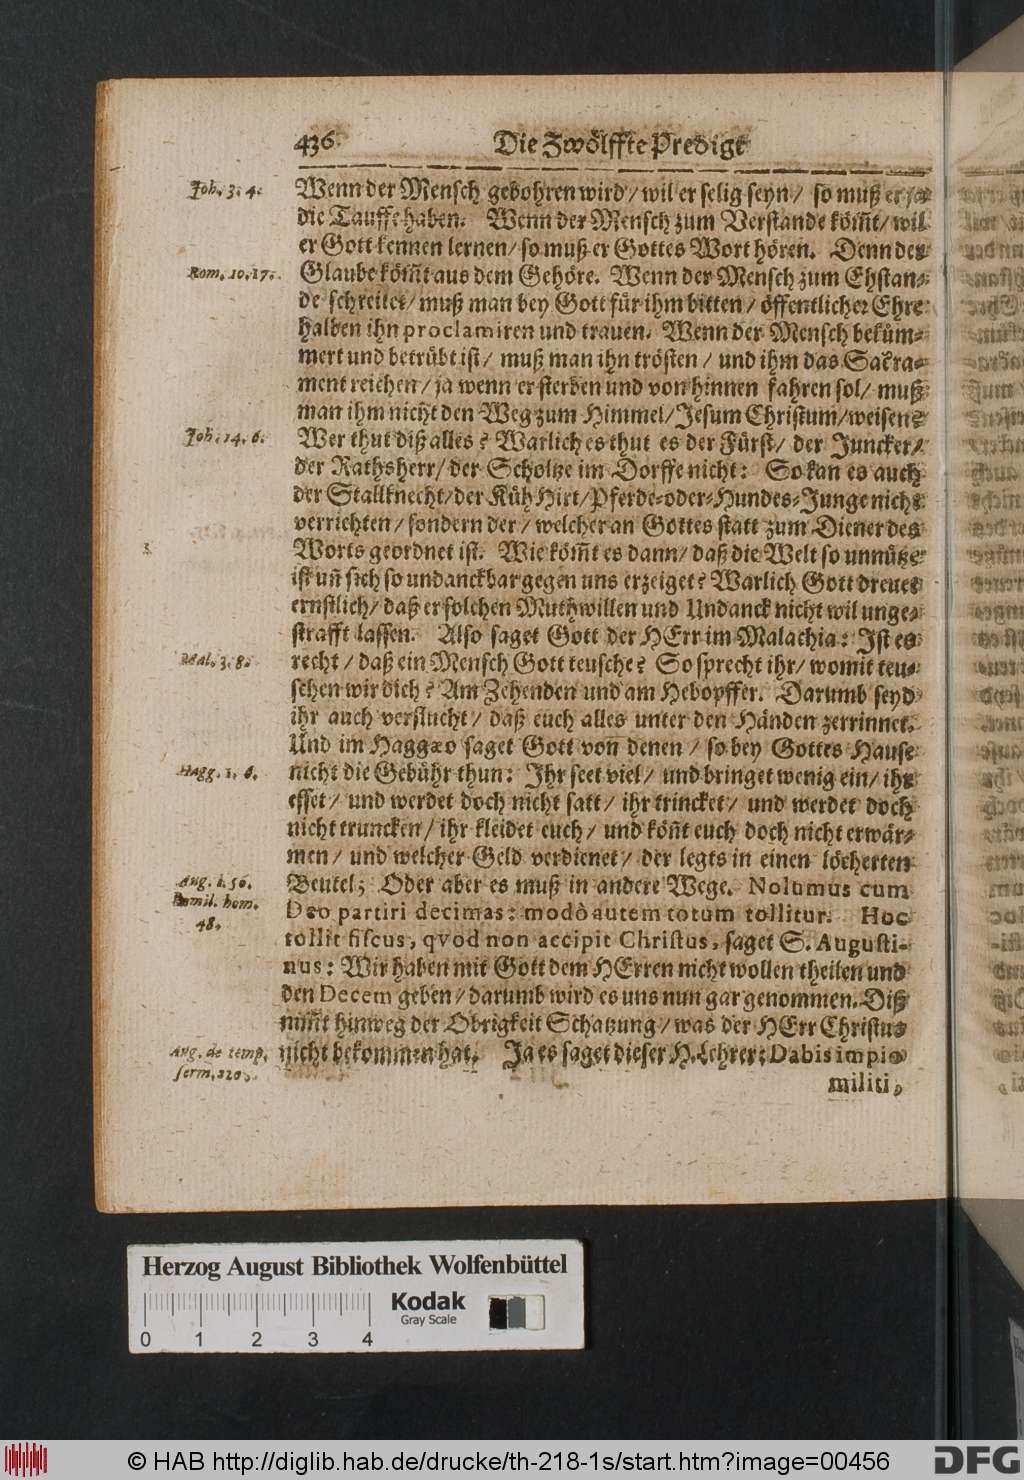 436 Die Zwölffte Predigt
Joh. 3. 4. Wenn der Mensch gebohren wird/ wil er selig seyn/ so muß er ja
die Tauffe haben. Wenn der Mensch zum Verstande köm̃t/ wil
er Gott kennen lernen/ so muß er Gottes Wort hören. Denn der
Rom. 10. 17. Glaube köm̃t aus dem Gehöre. Wenn der Mensch zum Ehstan-
de schreitet/ muß man bey Gott für ihm bitten/ öffentlicher Ehre
halben ihn proclamiren und trauen. Wenn der Mensch beküm-
mert und betrübt ist/ muß man ihn trösten/ und ihm das Sacra-
ment reichen/ ja wenn er sterben und von hinnen fahren sol/ muß
man ihm nicht den Weg zum Himmel/ Jesum Christum/ weisen?
Joh. 14. 6. Wer thut diß alles? Warlich es thut es der Fürst/ der Juncker/
der Rathsherr/ der Scholtze im Dorffe nicht: So kan es auch
der Stallknecht/ der Küh Hirt/ Pferde-oder-Hundes-Junge nicht
verrichten/ sondern der/ welcher an Gottes statt zum Diener des
Worts geordnet ist. Wie köm̃t es dann/ daß die Welt so unnütze
ist uñ sich so undanckbar gegen uns erzeiget? Warlich Gott dreuet
ernstlich/ daß er solchen Muthwillen und Undanck nicht wil unge-
strafft lassen. Also saget Gott der HErr im Malachia: Ist es
Mal. 3. 8. recht/ daß ein Mensch Gott teusche? So sprecht ihr/ womit teu-
schen wir dich? Am Zehenden und am Hebopffer. Darumb seyd
ihr auch verflucht/ daß euch alles unter den Händen zerrinnet.
Und im Haggæo saget Gott von denen/ so bey Gottes Hause
Hagg. 1. 6. nicht die Gebühr thun: Ihr seet viel/ und bringet wenig ein/ ihr
esset/ und werdet doch nicht satt/ ihr trincket/ und werdet doch
nicht truncken/ ihr kleidet euch/ und köñt euch doch nicht erwär-
men/ und welcher Geld verdienet/ der legts in einen löcherten
Aug. l. 50. Beutel; Oder aber es muß in andere Wege. Nolumus cum
Homil. hom. 48. Deo partiri decimas: modò autem totum tollitur. Hoc
tollit fiscus, qvod non accipit Christus, saget S. Augusti-
nus: Wir haben mit Gott dem HErren nicht wollen theilen und
den Decem geben/ darumb wird es uns nun gar genommen. Diß
nim̃t hinweg der Obrigkeit Schatzung/ was der HErr Christus
Aug. de temp. serm. 220. nicht bekommen hat. Ja es saget dieser H. Lehrer: Dabis impio
militi,
Herzog August Bibliothek Wolfenbüttel
Kodak
Gray Scale
0 1 2 3 4
© HAB http://diglib.hab.de/drucke/th-218-1s/start.htm?image=00456
DFG